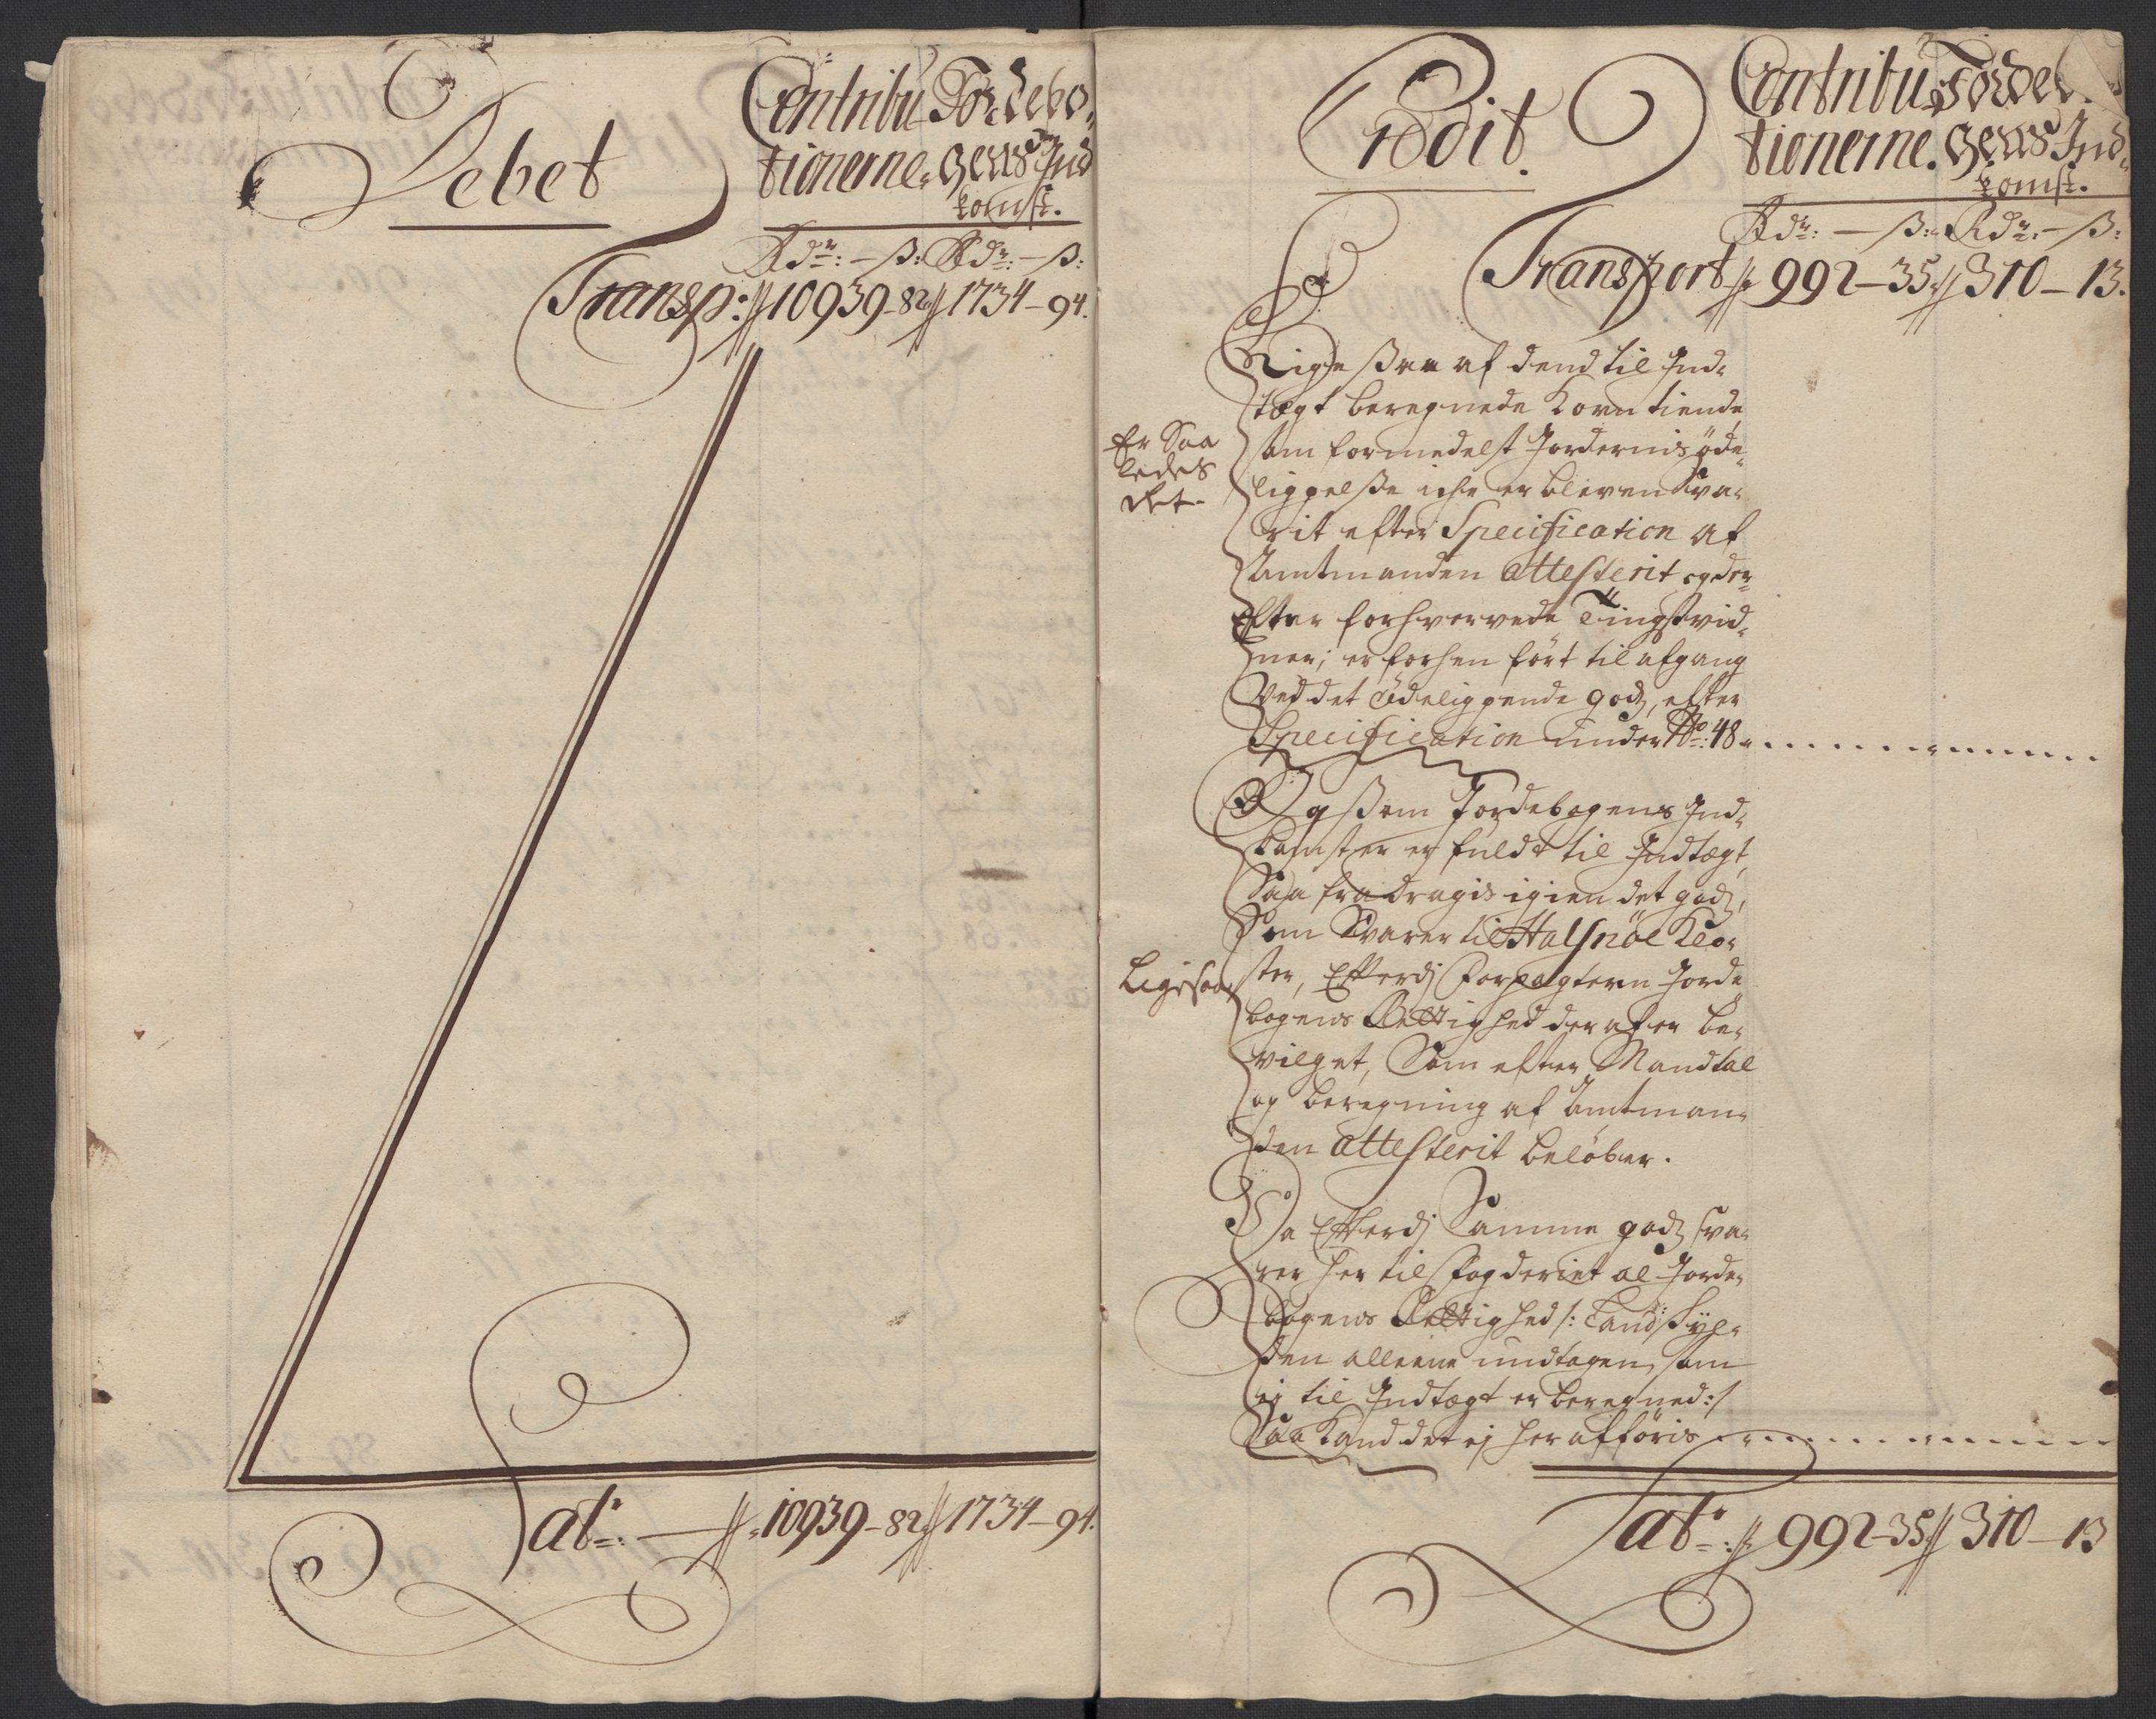 Debet
Contribu- Jordebo-
tionerne. gens Ind
komst.
Rdr: — ß: Rdr: — ß:
Transp: 10939-82 1734-94.
Lat: 10939-82 1734-94.
Credit.
Contribu- Jorde
tionerne. gens Ind-
komst.
Rdr: — ß: Rdr: — ß:
Transport 992-35 310-13.
Ligesaa af dend til Ind-
tægt beregnede Korn tiende
som formedelst Jordernis øde-
liggelße iche er bleven Sva-
rit efter Specification af
Amtmanden attesterit og der
Efter forhvervede Tingsvid-
ner; er forhen ført til afgang
Ved det Ødeliggende godz, efter
Specification under No: 48
Er Saa
ledes
Ret-
Og ßom Jordebogens Ind-
komster er fuldt til Indtægt,
Saa fradragis igien det godz,
Som Svarer til Halsnöe Klo-
ster, Efterdj Forpagteren Jorde
bogens Rettighed der af er be-
vilget, Som efter Mandtal
og beregning af Amtman-
den attesterit beløber.
Ligesaa
Da Efterdj Samme godz sva-
rer her til fogderiet al Jorde-
bogens Rettighed /: Landskyl-
den alleene undtagen, som
ej til Indtægt er beregned :/
Saa Kand det ej her afføris
Lat: 992-35 310-13